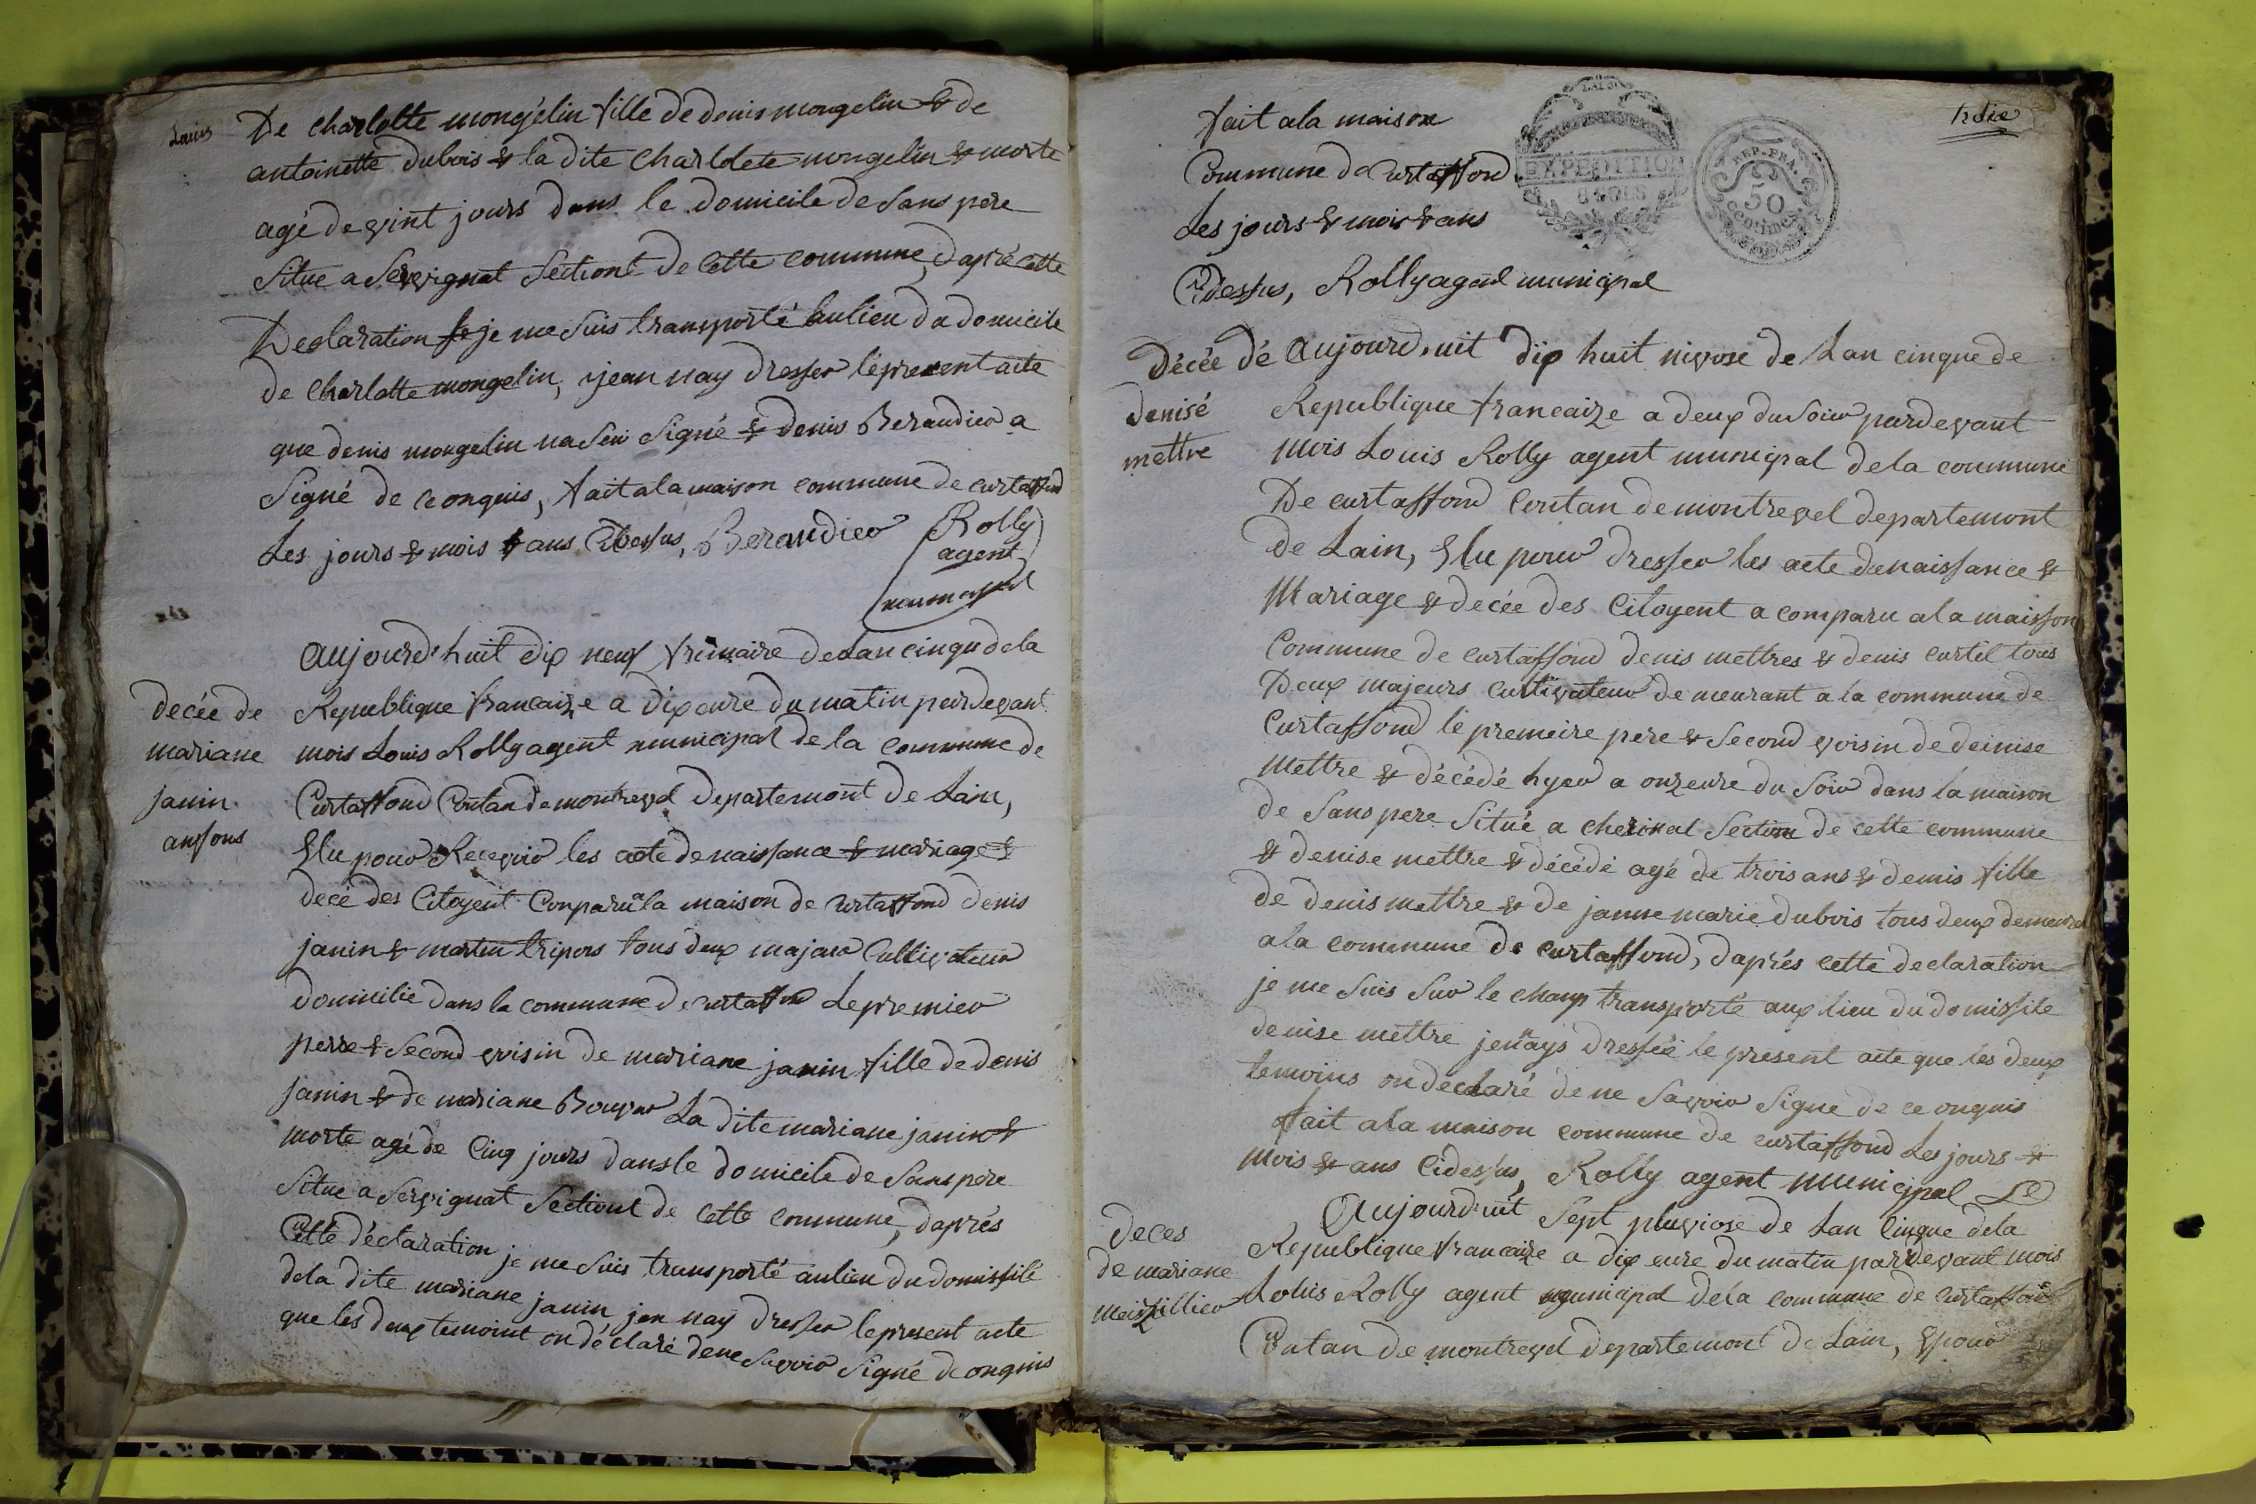 De charlotte mongélin fille de denis mongelin & de
antoinette dubois & la dite charldete mongelin & morte
agé de vint jours dans le domicile de sans pere
Situe a Servignat Sectiont de Cette commune, daprè cette
Declaration je me suis transporté aulieu du domicile
de charlotte mongelin, jean nay dresser lepresent acte
que denis mongelin na seu Signé & denis Beraudier a
Signé de ce onquis, fait ala maison commune de curtaffond
Les jours & mois & ans Cidessus, Beraudier Rolly
agent
aujourd'huit dix neuf frimaire de Lan cinque dela
Republique francaize a dix eure du matin pardevant
mois Louis Rolly agent municipal de la commune de
Curtaffond Contan de montrevel departemont de Lain,
Elu pour Recevoir les acte de naissance & mariage &
decé des Citoyent Conparu a la maison de curtaffond denis
janin & martin tripos tous deux majeur Cultivateur
domicilie dans la commune de curtaffond Le premier
perre & Second voisin de mariane janin fille de denis
janin & de mariane Bouvar La dite mariane janin &
morte agé de Cinq jours dans le domicile de Sans pere
Situe a Servignat Sectiont de Cette commune, daprés
Cette déclaration je me Suis transporté aulieu du domissile
dela dite mariane janin, jen nay dresser lepresent acte
que les deux temoint on déclaré dene Savoir Signé de onquis
decée de
mariane
janin
ansfons
fait ala maison
Commune de Curtaffond
Les jours & mois & ans
Cidessus, Rolly agent municipal
EXPÉDITION
REP. FRA.
50
centimes
Décée dé
denisé
mettre
aujourd.uit dix huit nivose de Lan cinque de
Republique francaize a deux du Soir pardevant
mois Louis Rolly agent municipal dela commune
De curtaffond Contan de montrevel departemont
de Lain, Elu pour dresser les acte denaissance &
Mariage & decée des Citoyent a comparu ala maisson
Commune de curtaffond denis mettres & denis curtil tous
Deux majeurs Cultivateur demeurant a la commune de
Curtaffond le premeire pere & Second voisin de deinise
mettre & décédé hyer a onzeure du Soir dans la maison
de Sans pere Situé a cherinal Section de cette commune
& denise mettre & décédé agé de trois ans & demis fille
de denis mettre & de janne marie dubois tous deux demeura
ala commune de curtaffond, daprés cette declaration
je me Suis Sur le champ transporté aux lieu du domissile
denise mettre jen nays dressée le present acte que les deux
temoins on declaré de ne Savoir Signé de ce onquis
fait ala maison commune de curtaffond Les jours &
mois & ans Cidessus, Rolly agent municipal
deces
de mariane
aujourd'uit Sept pluviose de Lan Cinque dela
Republique francaize a dix eure du matin pardevant mois
Louis Rolly agent municipal dela commune de Curtaffond
Contan de montrevel departemont de Lain, Epour